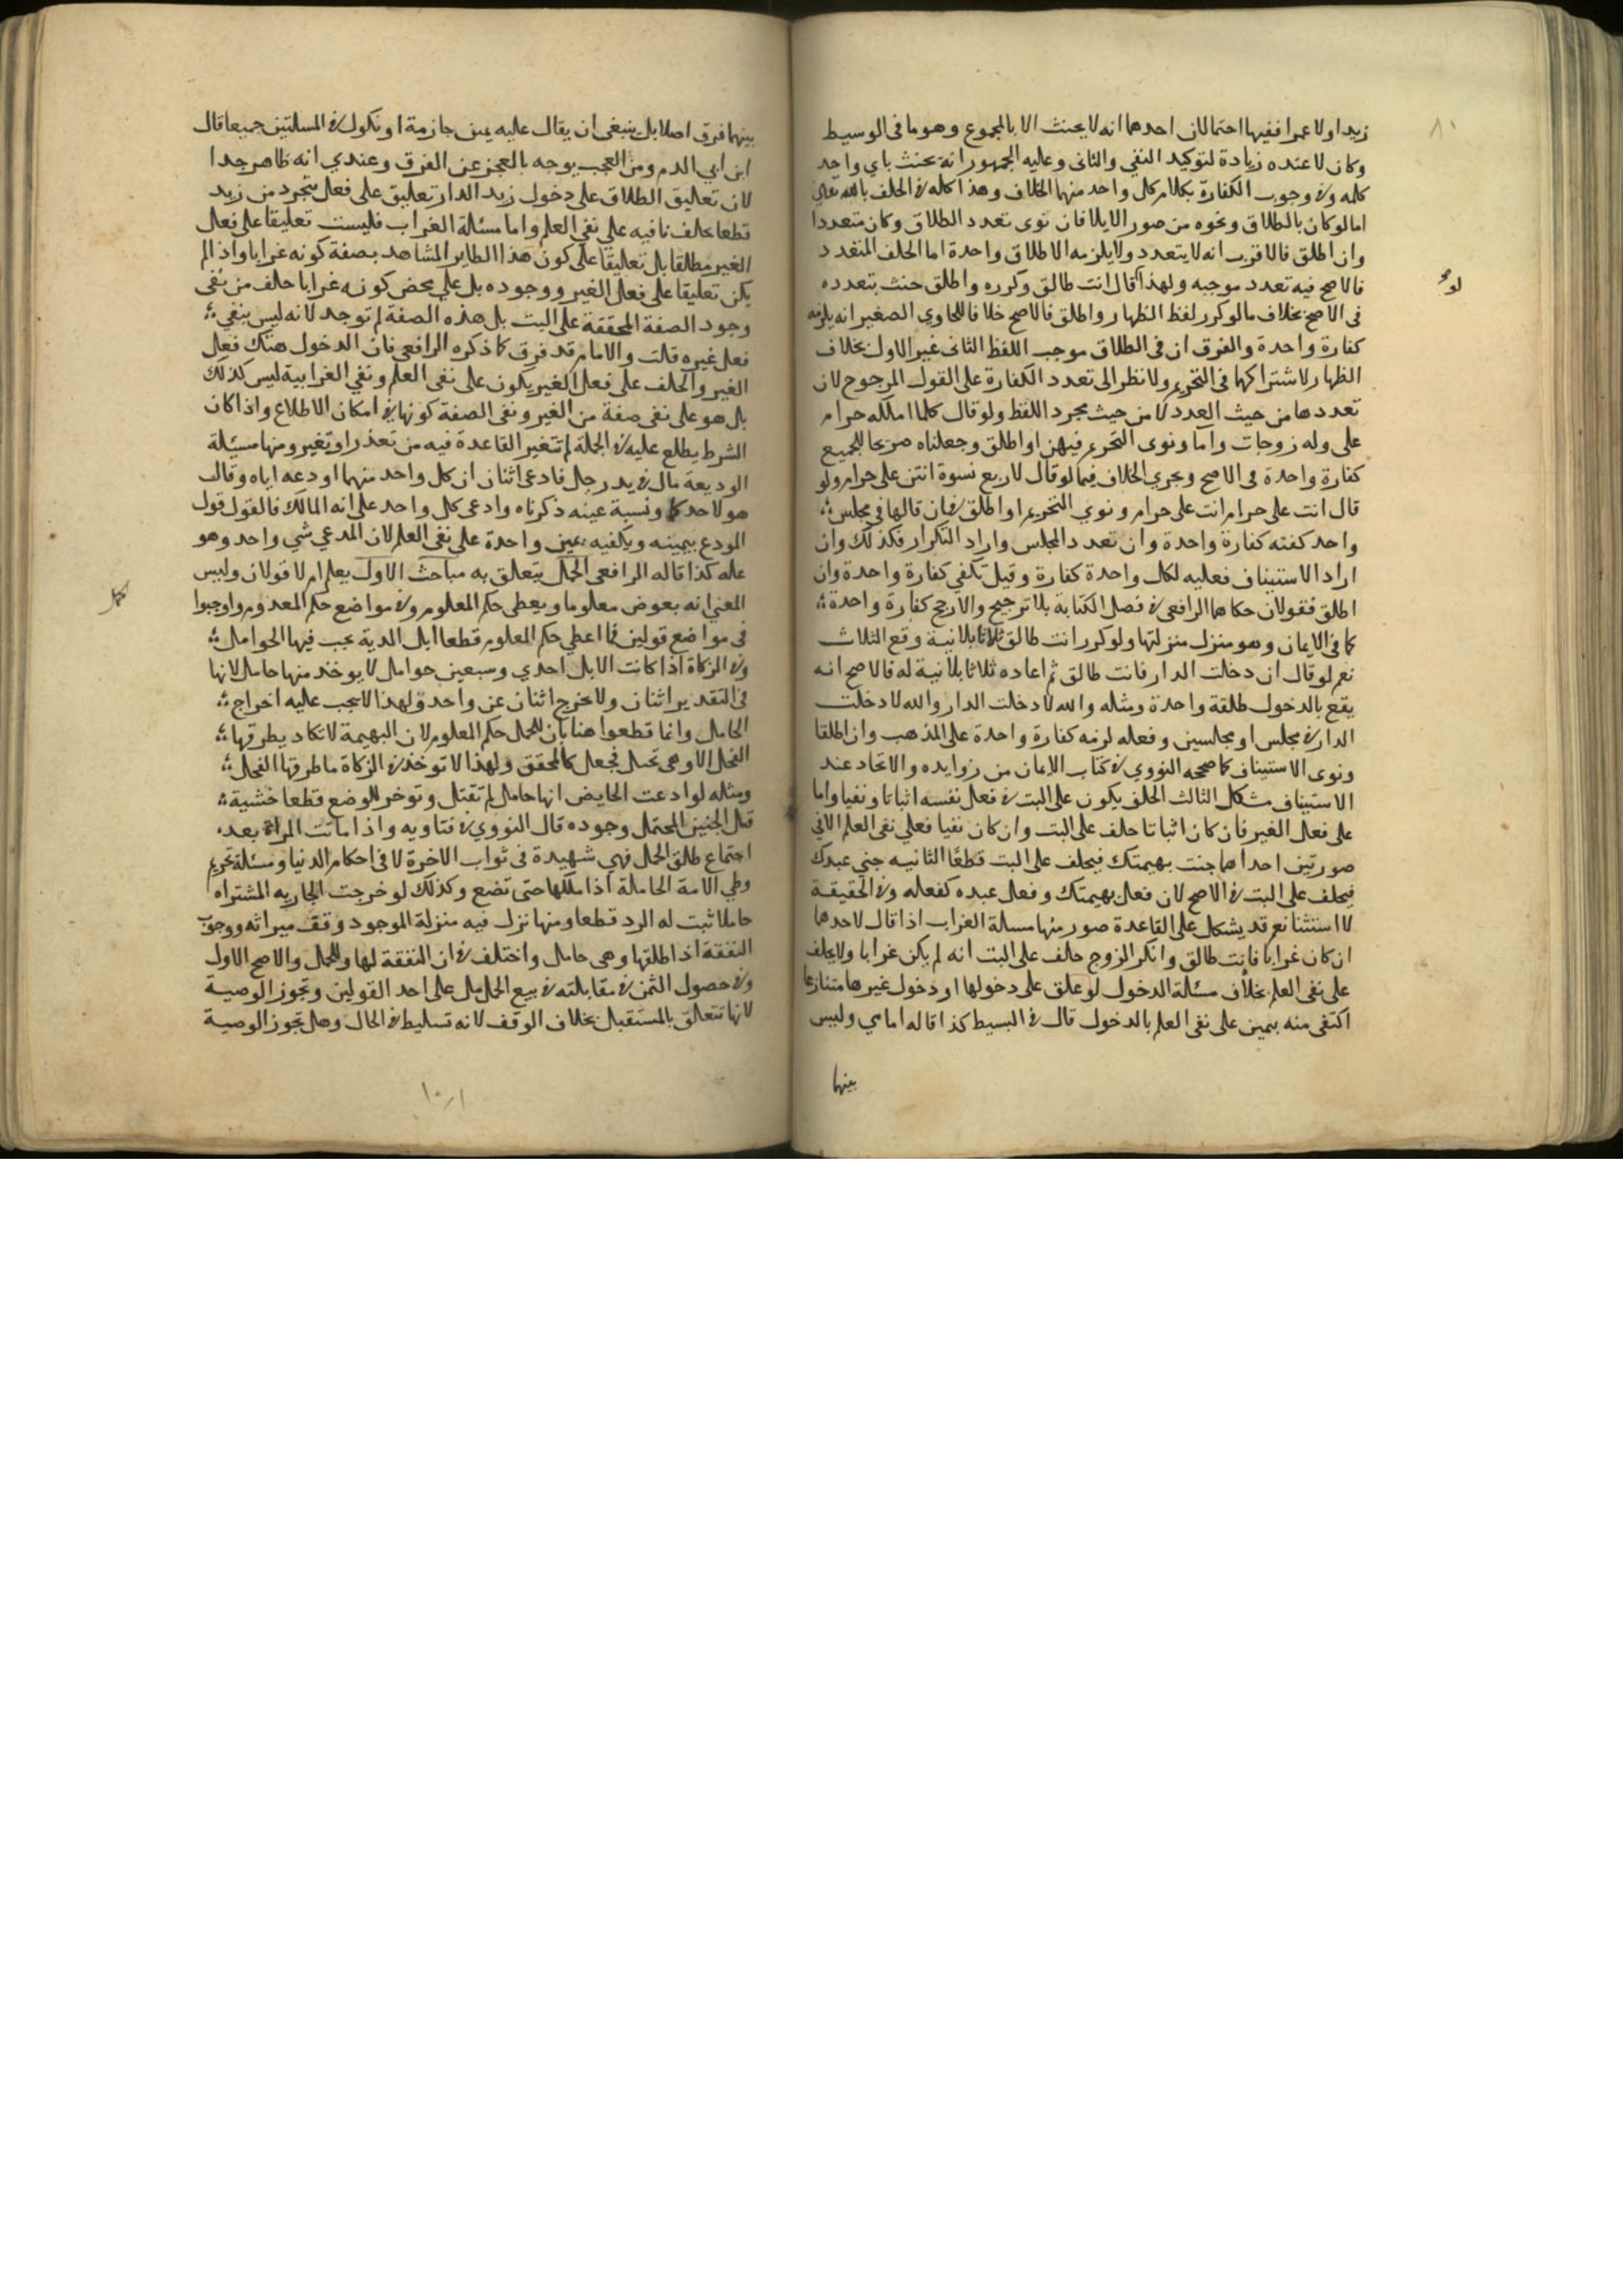 زيدا ولا عمرا ففيها احتمالان احدهما انه لا يحنث الا بالمجموع وهو ما في الوسيط
وكان لا عنده زيادة لتوكيد النفي والثاني وعليه الجمهور انه يحنث باي واحد
كلمه وفي وجوب الكفارة بكلام كل واحد منهما الخلاف وهذا كله في الحلف بالله تعالى
اما لو كان بالطلاق ونحوه من صور الايلا فان نوى تعدد الطلاق وكان متعددا
وان اطلق فالاقرب انه لا يتعدد ولا يلزمه الا طلاق واحدة اما الحلف المتعدد
فالاصح فيه تعدد موجبه ولهذا لو قال انت طالق وكرره واطلق حنث بتعدده
في الاصح بخلاف ما لو كرر لفظ الظهار واطلق فالاصح خلافا للحاوي الصغير انه يلزمه
كفارة واحدة والفرق ان في الطلاق موجب اللفظ الثاني غير الاول بخلاف
الظهار لاشتراكهما في التحريم ولا نظر الى تعدد الكفارة على القول المرجوح لان
تعددها من حيث العدد لا من حيث مجرد اللفظ ولو قال كلما املكه حرام
على وله زوجات واما ونوى التحريم فيهن او اطلق وجعلناه صريحا للجميع
كفارة واحدة في الاصح ويجري الخلاف فيما لو قال لاربع نسوة انتن على حرام ولو
قال انت على حرام انت على حرام ونوي التحريم او اطلق فان قالها في مجلس
واحد كفته كفارة واحدة وان تعدد المجلس واراد التكرار فكذلك وان
اراد الاستيناف فعليه لكل واحدة كفارة وقيل تكفي كفارة واحدة وان
اطلق فقولان حكاهما الرافعي في فصل الكتابة بلا ترجيح والارجح كفارة واحدة
كما في الايمان وهو منزل منزلتها ولو كرر انت طالق ثلاثا بلا نية وقع الثلاث
نعم لو قال ان دخلت الدار فانت طالق ثم اعاده ثلاثا بلا نية له فالاصح انه
يقع بالدخول طلقة واحدة ومثله والله لا دخلت الدار والله لا دخلت
الدار في مجلس او مجلسين وفعله لزمه كفارة واحدة على المذهب وان اطلقا
ونوى الاستيناف كما صححه النووي في كتاب الايمان من زوايده والاتحاد عند
الاستيناف مشكل الثالث الحلف يكون على البت في فعل نفسه اثباتا ونفيا واما
على فعل الغير فان كان اثباتا حلف على البت وان كان نفيا فعلي نفي العلم الا في
صورتين احداهما جنت بهيمتك فيحلف على البت قطعا الثانيه جني عبدك
فيحلف على البت في الاصح لان فعل بهيمتك وفعل عبده كفعله وفي الحقيقة
لا استثنا نعم قد يشكل على القاعدة صور منها مسالة الغراب اذا قال لاحدهما
ان كان غرابا فانت طالق وانكر الزوج حلف على البت انه لم يكن غرابا ولا يحلف
على نفي العلم بخلاف مسئلة الدخول لو علق على دخولها او دخول غيرها متنازعا
اكتفي منه بيمين على نفي العلم بالدخول قال في البسيط كذا قاله امامي وليس
بينهما
بينهما فرق اصلا بل ينبغي ان يقال عليه يمين جازمة او نكول في المسلتين جميعا قال
ابن ابي الدم ومن العجب بوجه بالعجز عن الفرق وعندي انه ظاهر جدا
لان تعليق الطلاق على دخول زيد الدار تعليق على فعل تجرد من زيد
قطعا يحلف نافيه علي نفي العلم واما مسئلة الغراب فليست تعليقا على فعل
الغير مطلقا بل تعليقا على كون هذا الطاير المشاهد بصفة كونه غرابا واذا لم
يكن تعليقا على فعل الغير ووجوده بل علي محض كونه غرابا حلف من نفى
وجود الصفة المحققة على البت بل هذه الصفة لم توجد لانه ليس ينفي
فعل غيره قلت والامام قد فرق كما ذكره الرافعي فان الدخول هناك فعل
الغير والحلف على فعل الغير يكون على نفي العلم ونفي الغرابية ليس كذلك
بل هو على نفي صفة من الغير ونفي الصفة كونها في امكان الاطلاع واذا كان
الشرط يطلع عليه في الجملة لم تتغير القاعدة فيه من تعذر او تغير ومنها مسئلة
الوديعة مال في يد رجل فادعى اثنان ان كل واحد منهما اودعه اياه وقال
هو لاحدكما ونسيت عينه ذكرناه وادعى كل واحد على انه المالك فالقول قول
المودع بيمينه ويكفيه يمين واحدة على نفي العلم لان المدعي شي واحد وهو
علمه كذا قاله الرافعي الحمل يتعلق به مباحث الاول يعلم ام لا قولان وليس
المعني انه يعوض معلوما ويعطى حكم المعلوم وفي مواضع حكم المعدوم واوجبوا
في مواضع قولين فما اعطي حكم المعلوم قطعا ابل الدية يجب فيها الحوامل
وفي الزكاة اذا كانت الابل احدي وسبعين حوامل لا يوخذ منها حامل لانها
في التقدير اثنان ولا يخرج اثنان عن واحد ولهذا لا يجب عليه اخراج
الحامل وانما قطعوا هنا بان للحمل حكم المعلوم لان البهيمة لا تكاد يطرقها
الفحل الا وهي تحبل فجعل كالمحقق ولهذا لا توخذ في الزكاة ما طرقها الفحل
ومثله لو ادعت الحايض انها حامل لم تقتل وتوخر للوضع قطعا خشية
قتل الجنين المحتمل وجوده قال النووي في فتاويه واذا ماتت المراة بعد
اجتماع طلق الحمل فهي شهيدة في ثواب الاخرة لا في احكام الدنيا ومسئلة تحريم
وطي الامة الحاملة اذا ملكها حتى تضع وكذلك لو خرجت الجاريه المشتراه
حاملا ثبت له الرد قطعا ومنها نزل فيه منزلة الموجود وقف ميراثه ووجوب
النفقة اذا طلقها وهي حامل واختلف في ان النفقة لها او للحمل والاصح الاول
وفي حصول الثمن في مقابلته في بيع الحامل على احد القولين وتجوز الوصية
لانها تتعلق بالمستقبل بخلاف الوقف لانه تسليط في الحال وهل تجوز الوصية